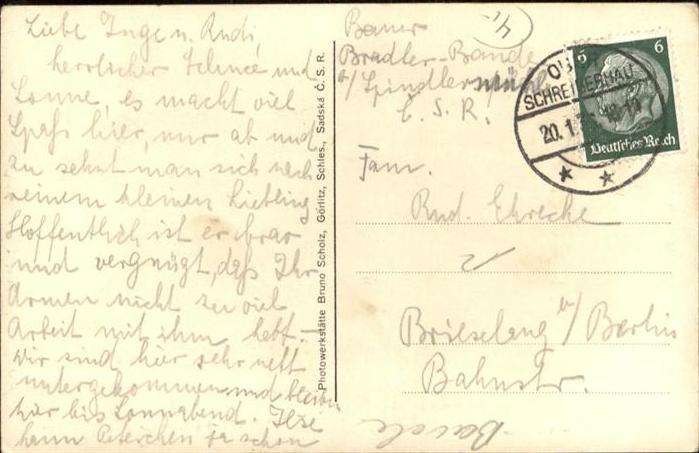 Liebe Inge u. Rudi,
herrlicher Schnee und
Sonne, es macht viel
Spaß hier, nur ab und
zu sehnt man sich nach
seinem kleinen Liebling
Hoffentlich ist er brav
und vergnügt, daß Ihr
Armen nicht zu viel
Arbeit mit ihm habt.-
Wir sind hier sehr nett
untergekommen und bleiben
hier bis Sonnabend. Ilse
kann Peterchen ja schon
Photowerkstätte Bruno Scholz, Görlitz, Schles., Sadská Č. S. R.
Bauer
Bradler-Baude
b/Spindlermühle
C. S. R.
Fam.
Rud. Ehrecke
Brieselang b/Berlin
Bahnstr.
SCHREIBERHAU
20. 1.
6 6
Deutsches Reich